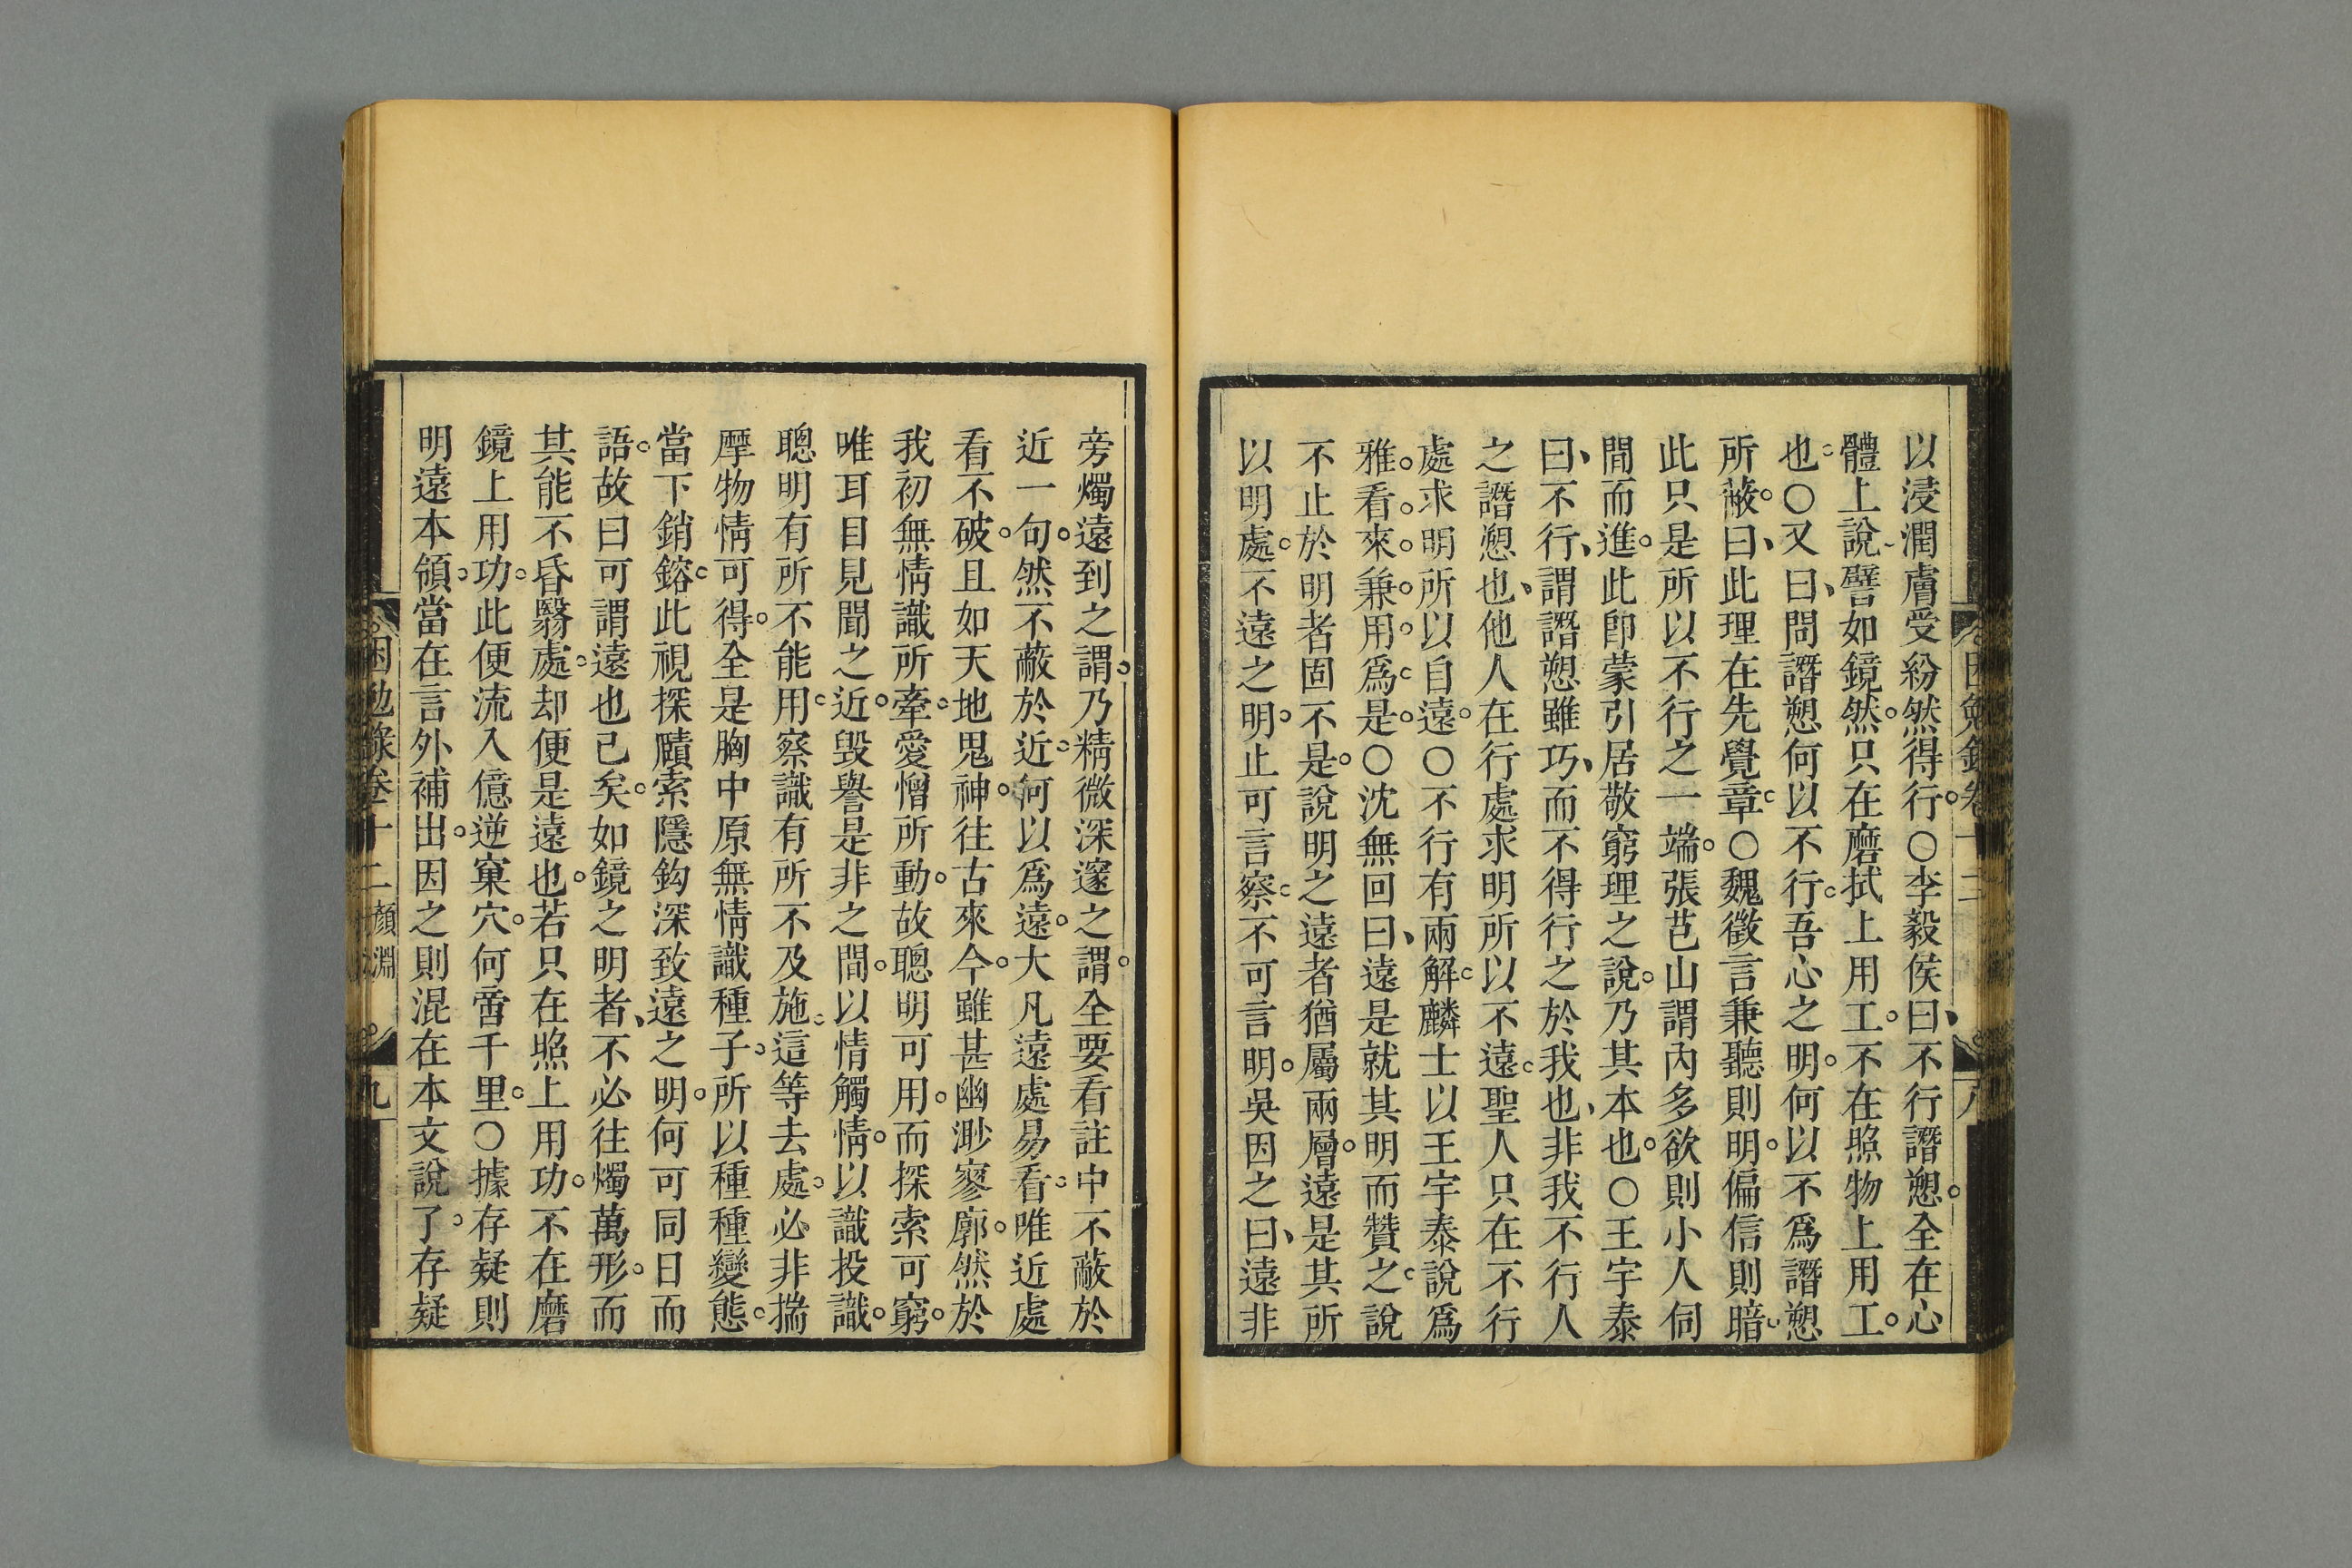 以浸潤膚受紛然得行。○李毅侯曰、不行譖愬。全在心
體上說、譬如鏡然。只在磨拭上用工。不在照物上用工。
也。○又曰、問譖愬何以不行。吾心之明。何以不爲譖愬
所蔽。曰、此理在先覺章。○魏徵言兼聽則明。偏信則暗。
此只是所以不行之一端。張芑山謂內多欲則小人伺
間而進。此卽蒙引居敬窮理之說。乃其本也。○王宇泰
曰、不行、謂譖愬雖巧、而不得行之於我也、非我不行人
之譖愬也、他人在行處求明所以不遠。聖人只在不行
處求明所以自遠。○不行有兩解。麟士以王宇泰說爲
雅。看。來。兼。用。爲。是。○沈無回曰、遠是就其明而贊之。說
不止於明者固不是。說明之遠者猶屬兩層。遠是其所
以明處。不遠之明。止可言察。不可言明。吳因之曰、遠非
困勉錄卷十二
八
旁燭遠到之謂。乃精微深邃之謂。全要看註中不蔽於
近一句。然不蔽於近。何以爲遠。大凡遠處易看。唯近處
看不破。且如天地鬼神。往古來今。雖甚幽渺寥廓。然於
我初無情識所牽。愛憎所動。故聰明可用。而探索可窮。
唯耳目見聞之近。毀譽是非之間。以情觸情。以識投識。
聰明有所不能用。察識有所不及施。這等去處。必非揣
摩物情可得。全是胸中原無情識種子。所以種種變態。
當下銷鎔。此視探賾索隱鈎深致遠之明。何可同日而
語。故曰可謂遠也已矣。如鏡之明者、不必往燭萬形。而
其能不昏翳處。却便是遠也。若只在照上用功。不在磨
鏡上用功。此便流入億逆窠穴。何啻千里。○據存疑則
明遠本領。當在言外補出。因之則混在本文說了。存疑
困勉錄卷十二 顏淵
九